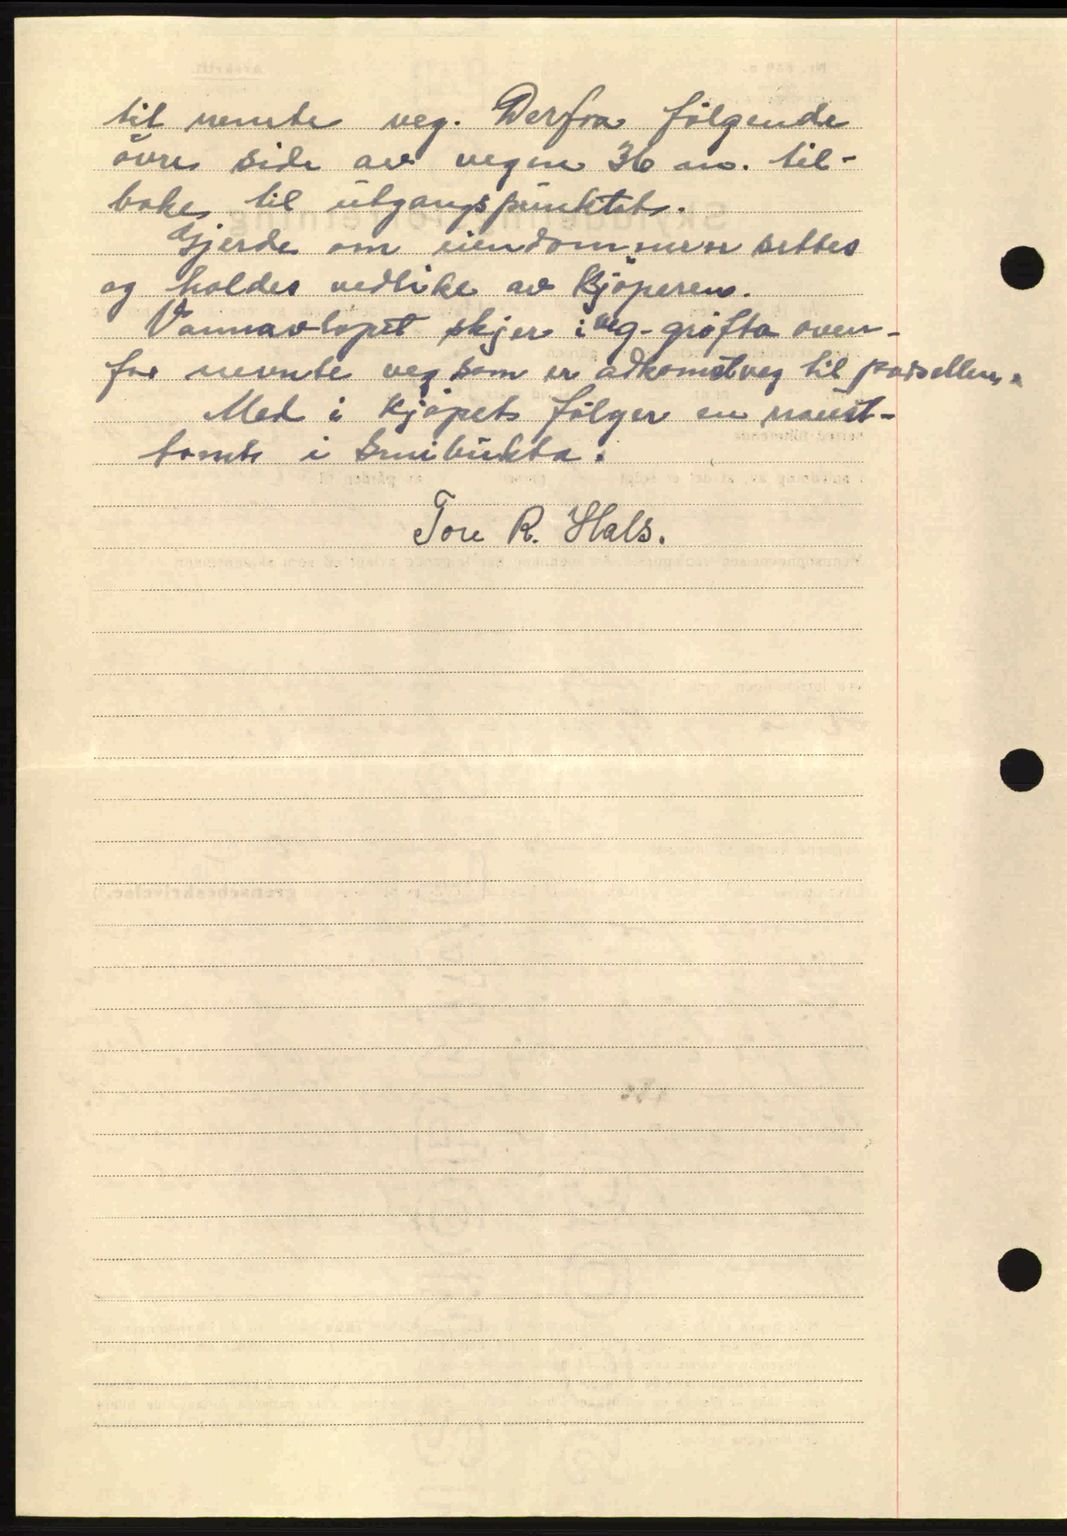 til nevnte veg. Derfra følgende
øvre side av vegen 36 m. til-
bake til utgangspunktet.
Gjerde om eiendommen settes
og holdes vedlike av kjøperen.
Vannavløpet skjer i veg-grøfta oven-
for nevnte veg som er adkomstveg til parsellen.
Med i kjøpet følger en naust-
tomt i Smibukta.
Tore R. Hals.